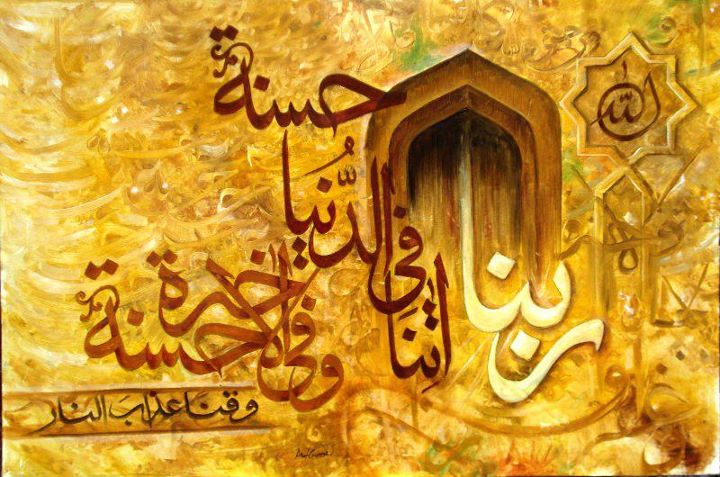 الله
ربنا
اتِنَا
فِى الدُّنيَا
حسنة
وفى الاخرة
حسنة
وقنا عذابَ النار